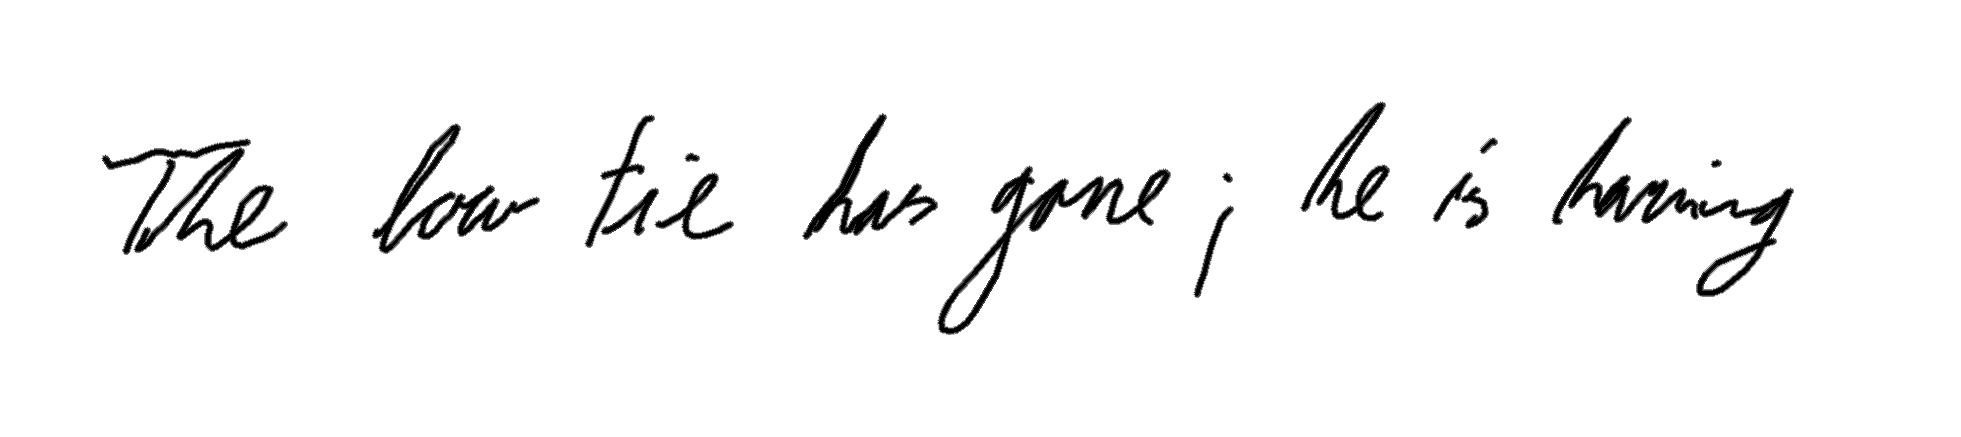 The low tie has gone; he is having